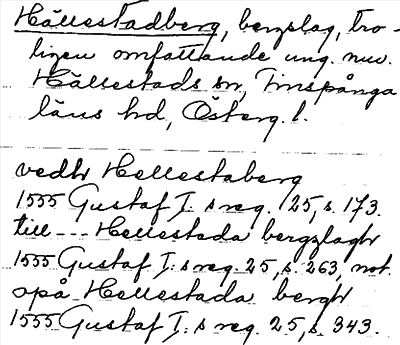 Hällestadberg, bergslag, tro-
ligen omfattande ung. nuv.
Hällestads sn, Finspånga
läns hd, Österg. l.
vedh Hellestaberg
1555 Gustaf I:s reg. 25, s. 173.
till --- Hellestada bergzlagh
1555 Gustaf I:s reg. 25, s. 263, not.
opå Hellestada bergh
1555 Gustaf I:s reg. 25, s. 343.